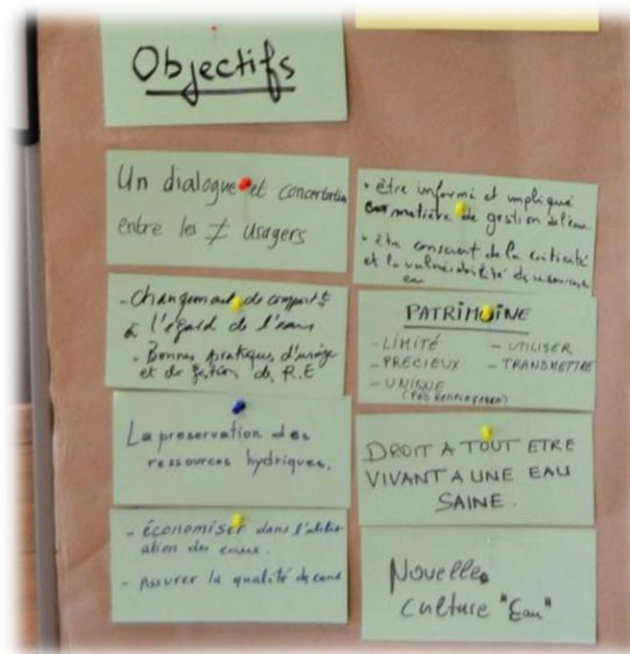 Objectifs
Un dialogue et concertation
entre les ≠ usagers
- Changement de comport t
à l'égard de l'eau
- Bonnes pratiques d'usage
et de gestion des R.E
La preservation des
ressources hydriques.
- économiser dans l'utilis-
ation des eaux.
- Assurer la qualité des eaux
• être informé et impliqué
en matière de gestion de l'eau.
• être conscient de la criticité
et la vulnérabilité de ressources
eau
PATRIMOINE
- LIMITÉ
- PRECIEUX
- UNIQUE
(PAS REMPLAÇABLE)
- UTILISER
- TRANSMETTRE
DROIT A TOUT ETRE
VIVANT A UNE EAU
SAINE.
Nouvelle
culture "Eau"